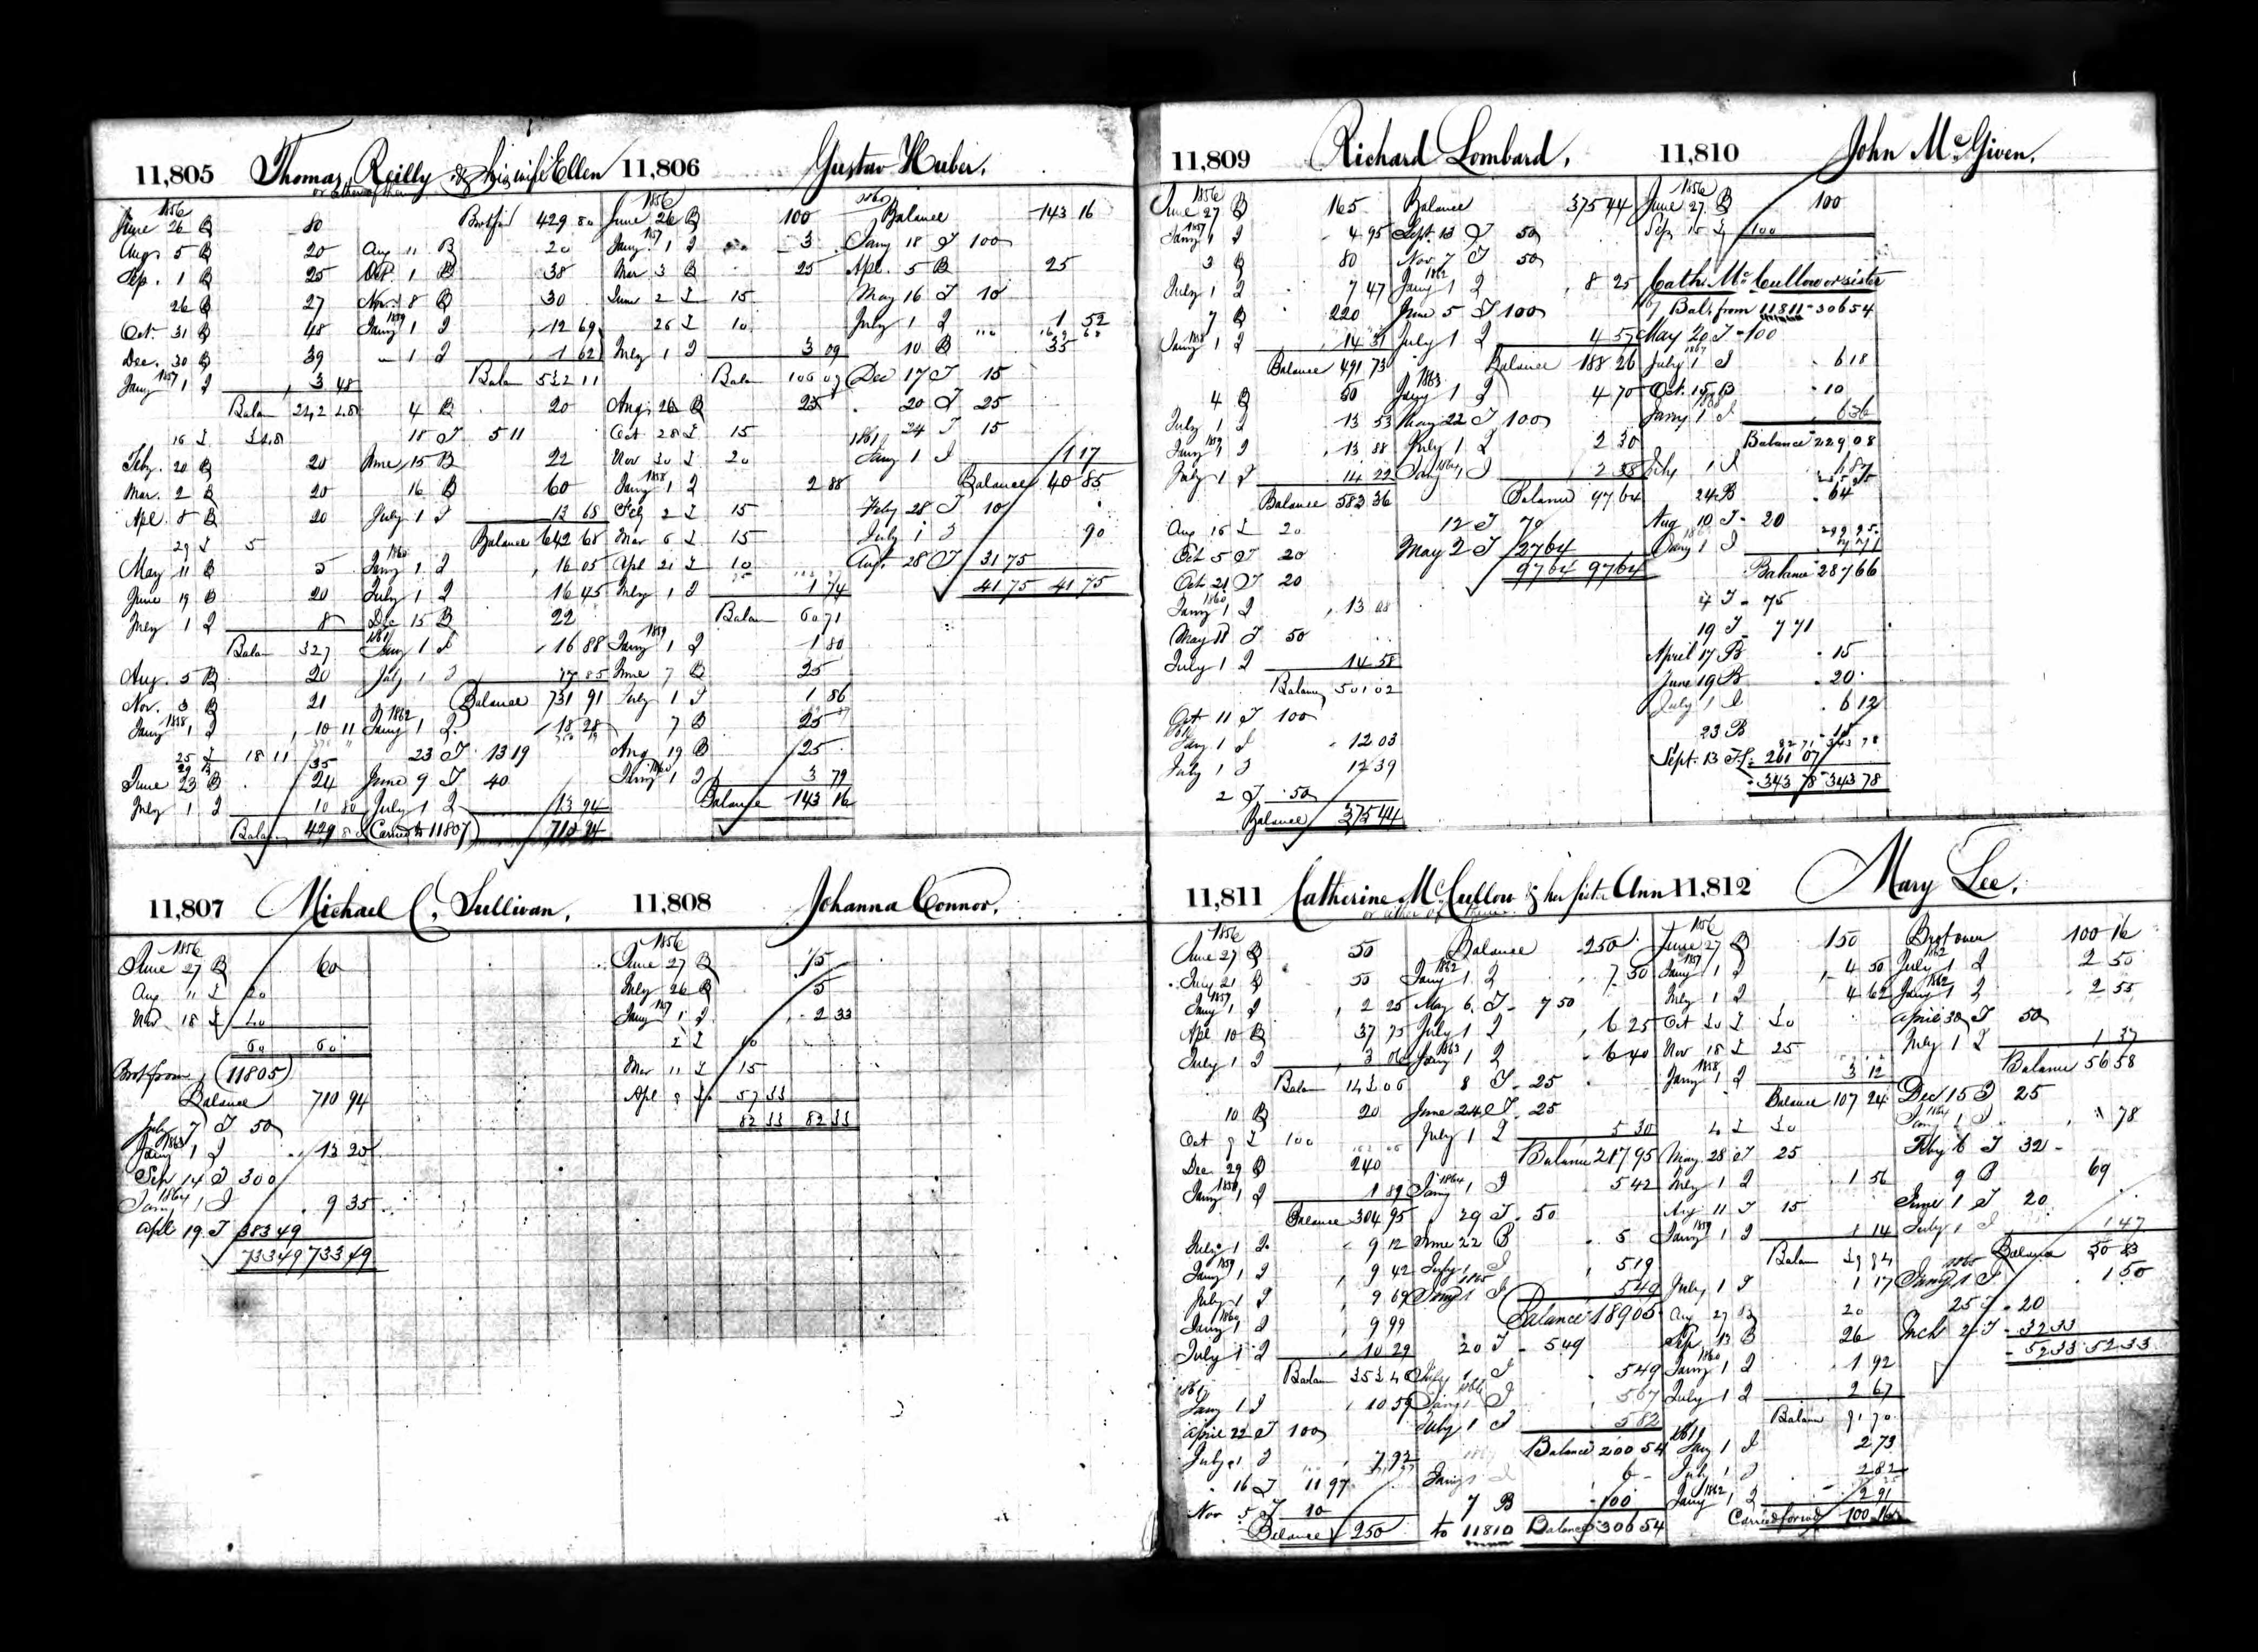 11,805 Thomas Reilly & his wife Ellen
or either of them
1856
June 26 B 80
Aug 5 B 20
Sep. 1 B 25
26 B 27
Oct. 31 B 48
Dec. 30 B 39
Jany 1857 1 I 3 48
Balan 242 48
16 I 3 48
Feby. 20 B 20
Mar. 2 B 20
Apl. 8 B 20
29 I 5
May 11 B 5
June 19 B 20
July 1 I 8
Balan 327
Aug. 5 B 20
Nov. 3 B 21
Jany 1858 1 I 10 11
25 I 18 11
29 B 35
June 23 B 24
July 1 I 10 80
Balan 429 80
Brotfor 429 80
Aug 11 B 20
Oct. 1 B 38
Nov. 8 B 30
Jany 1859 1 I 12 69
1 I 1 62
Balan 532 11
4 B 20
18 I 5 11
June 15 B 22
16 B 60
July 1 I 13 68
Balance 642 68
Jany 1860 1 I 16 05
July 1 I 16 45
Dec 15 B 22
1861 Jany 1 I 16 88
July 1 I 17 85
Balance 731 91
1862 Jany 1 I 18 28
23 I 13 19
June 9 I 40
July 1 I 13 94
(Carried to 11807) 710 94
11,806 Gustav Huber.
1856
June 26 B 100
Jany 1857 1 I 3
Mar 3 B 25
June 2 I 15
26 I 10
July 1 I 3 09
Balan 106 09
Aug. 26 B 25
Oct 28 I 15
Nov 30 I 20
Jany 1858 1 I 2 88
Feb 2 I 15
Mar 6 I 15
Apl 21 I 10
July 1 I 1 74
Balan 60 71
Jany 1859 1 I 1 80
June 7 B 25
July 1 I 1 86
7 B 25
Aug 19 B 25
Jany 1860 1 I 3 79
Balance 143 16
1860 Balance 143 16
Jany 18 I 100
Apl. 5 B 25
May 16 I 10
July 1 I 1 52
10 B 35
Dec 17 I 15
20 I 25
24 I 15
1861 Jany 1 I 1 17
Balance 40 85
Feby 28 I 10
July 1 I 90
Aug. 28 I 31 75
41 75 41 75
11,807 Michael C. Sullivan.
1856
June 27 B 60
Aug 11 I 20
Nov 18 I 40
60 60
Brot from (11805)
Balance 710 94
July 7 I 50
Jany 1863 1 I 13 20
Sep 14 I 300
Jany 1864 1 I 9 35
Apl 19 I 383 49
733 49 733 49
11,808 Johanna Connor.
1856
June 27 B 75
July 26 B 5
Jany 1857 1 I 2 33
2 I 10
Mar 11 I 15
Apl 9 I 57 33
82 33 82 33
11,809 Richard Lombard.
1856
June 27 B 165
Jany 1857 1 I 4 95
3 B 80
July 1 I 7 47
7 B 220
Jany 1858 1 I 14 31
Balance 491 73
4 B 50
July 1 I 13 53
Jany 1859 1 I 13 88
July 1 I 14 22
Balance 583 36
Aug 16 I 20
Oct 5 I 20
Oct 21 I 20
Jany 1860 1 I 13 08
May 11 I 50
July 1 I 14 58
Balance 501 02
Oct 11 I 100
1861 Jany 1 I 12 03
July 1 I 12 39
2 I 50
Balance 375 44
Balance 375 44
Sept. 13 I 50
Nov 7 I 50
Jany 1862 1 I 8 25
June 5 I 100
July 1 I 4 57
Balance 188 26
Jany 1863 1 I 4 70
May 22 I 100
July 1 I 2 30
Jany 1864 1 I 2 38
Balance 97 64
12 I 70
May 2 I 27 64
97 64 97 64
11,810 John McGiven.
1856
June 27 B 100
Sep 15 I 100
Cathe McCullow or sister
Bal. from 11811 - 306 54
May 20 I - 100
July 1867 1 I 6 18
Oct. 15 B 10
Jany 1 I 6 36
Balance 229 08
July 1 I 6 87
24 B 64
Aug 10 I - 20
Jany 1 I 7 71
Balance 287 66
4 I - 75
19 I 7 71
April 17 B 15
June 19 B 20
July 1 I 6 12
23 B 15
Sept. 13 I 261 07
343 78 343 78
11,811 Catherine McCullow & her sister Ann
or either of them
1856
June 27 B 50
July 21 B 50
Jany 1857 1 I 2 25
Apl 10 B 37 75
July 1 I 3 06
Balan 143 06
10 B 20
Oct 9 I 100
Dec. 29 B 240
Jany 1858 1 I 1 89
Balance 304 95
July 1 I 9 12
Jany 1859 1 I 9 42
July 1 I 9 69
Jany 1860 1 I 9 99
July 1 I 10 29
Balan 353 46
1861 Jany 1 I 10 59
April 22 I 100
July 1 I 7 92
16 I 11 97
Nov 5 I 10
Balance 250
Balance 250
Jany 1862 1 I 7 50
May 6 I - 7 50
July 1 I 6 25
Jany 1863 1 I 6 40
8 I - 25
June 24 I - 25
July 1 I 5 30
Balance 217 95
Jany 1864 1 I 5 42
29 I - 50
June 22 B 5
July 1 I 5 19
Jany 1865 1 I 5 49
Balance 189 05
20 I - 5 49
July 1 I 5 49
Jany 1866 1 I 5 67
July 1 I 5 82
Balance 200 54
Jany 1 I 6 -
7 B 100
to 11810 Balance 306 54
11,812 Mary Lee.
1856
June 27 B 150
Jany 1857 1 I 4 50
July 1 I 4 62
Oct 30 I 30
Nov 18 I 25
Jany 1858 1 I 3 12
Balance 107 24
4 I 30
May 28 I 25
July 1 I 1 56
Aug 11 I 15
Jany 1859 1 I 1 14
Balan 39 94
July 1 I 1 17
Aug 27 B 20
Sep 13 B 26
Jany 1860 1 I 1 92
July 1 I 2 67
Balan 91 70
1861 Jany 1 I 2 73
July 1 I 2 82
Jany 1862 1 I 2 91
Carried forward 100 16
Brot over 100 16
July 1862 1 I 2 50
Jany 1 I 2 55
April 30 I 50
July 1 I 1 37
Balance 56 58
Dec 15 I 25
Jany 1864 1 I 78
Feby 6 I 32 -
9 B 69
June 1 I 20
July 1 I 1 47
Balance 50 83
Jany 1865 1 I 1 50
25 I - 20
Mch 2 I - 32 33
52 33 52 33